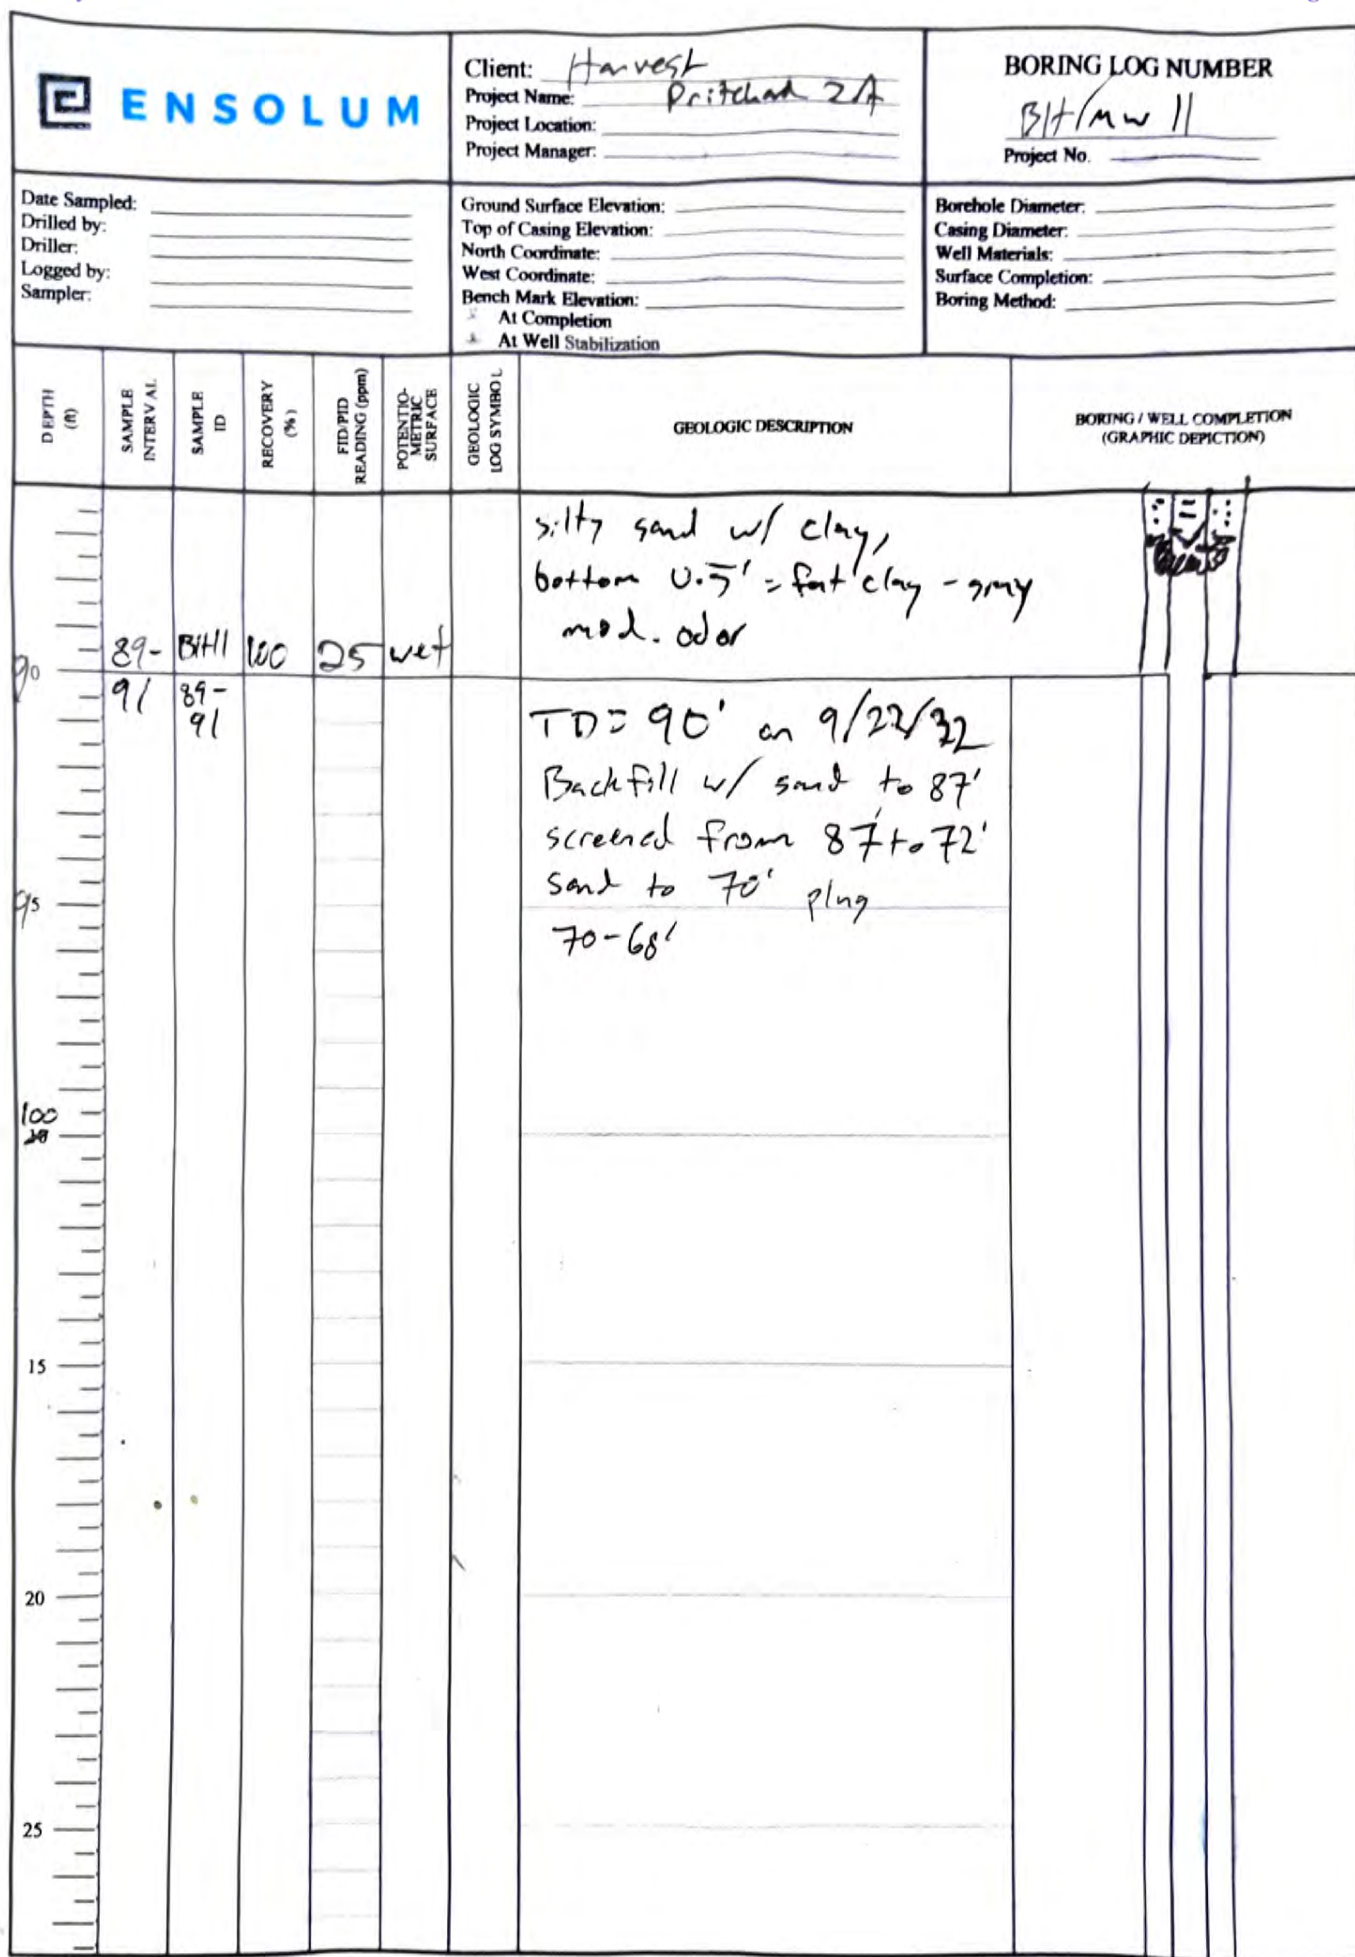 ENSOLUM
Client: Harvest
Project Name: Pritchard 2A
Project Location:
Project Manager:
BORING LOG NUMBER
BH/MW 11
Project No.
Date Sampled:
Drilled by:
Driller:
Logged by:
Sampler:
Ground Surface Elevation:
Top of Casing Elevation:
North Coordinate:
West Coordinate:
Bench Mark Elevation:
At Completion
At Well Stabilization
Borehole Diameter:
Casing Diameter:
Well Materials:
Surface Completion:
Boring Method:
DEPTH (ft)
SAMPLE INTERVAL
SAMPLE ID
RECOVERY (%)
FID/PID READING (ppm)
POTENTIO-METRIC SURFACE
GEOLOGIC LOG SYMBOL
GEOLOGIC DESCRIPTION
BORING / WELL COMPLETION
(GRAPHIC DEPICTION)
silty sand w/ clay,
bottom 0.5' = fat clay - gray
mod. odor
90 89- BH11 100 25 wet
91 89-
91
TD = 90' on 9/22/22
Backfill w/ sand to 87'
screened from 87' to 72'
sand to 70' plug
95
70-68'
100
15
20
25